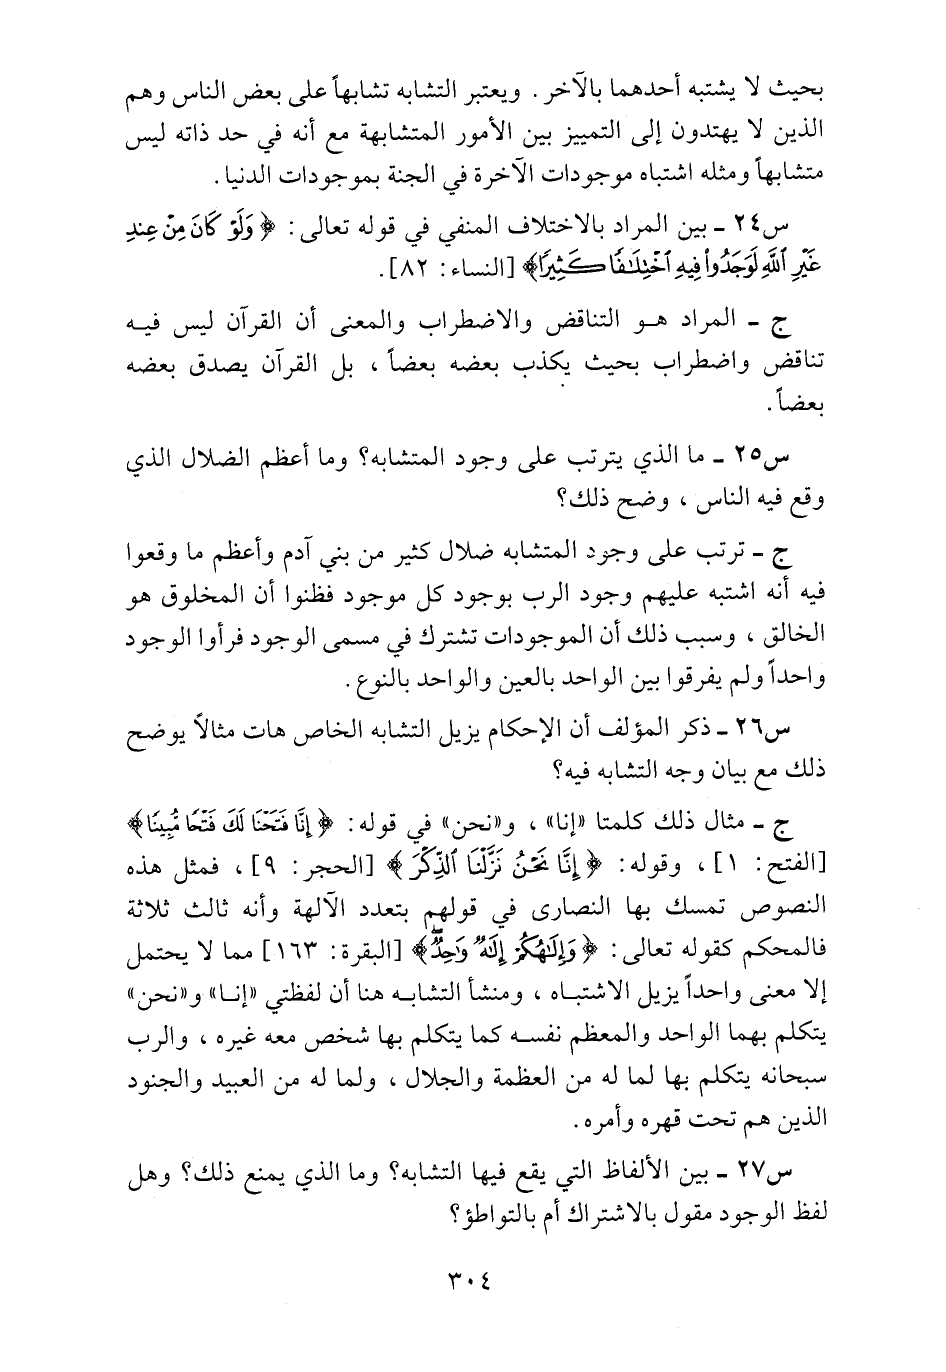 بحيث لا يشتبه أحدهما بالآخر. ويعتبر التشابه تشابهاً على بعض الناس وهم
الذين لا يهتدون إلى التمييز بين الأمور المتشابهة مع أنه في حد ذاته ليس
متشابهاً ومثله اشتباه موجودات الآخرة في الجنة بموجودات الدنيا.
س٢٤ ـ بين المراد بالاختلاف المنفي في قوله تعالى: ﴿وَلَوْ كَانَ مِنْ عِندِ
غَيْرِ ٱللَّهِ لَوَجَدُوا۟ فِيهِ ٱخْتِلَـٰفًا كَثِيرًا﴾ [النساء: ٨٢].
ج ـ المراد هـو التناقض والاضطراب والمعنى أن القرآن ليس فيـه
تناقض واضطراب بحيث يكذب بعضه بعضاً، بل القرآن يصدق بعضه
بعضاً.
س٢٥ ـ ما الذي يترتب على وجود المتشابه؟ وما أعظم الضلال الذي
وقع فيه الناس، وضح ذلك؟
ج ـ ترتب على وجود المتشابه ضلال كثير من بني آدم وأعظم ما وقعوا
فيه أنه اشتبه عليهم وجود الرب بوجود كل موجود فظنوا أن المخلوق هو
الخالق، وسبب ذلك أن الموجودات تشترك في مسمى الوجود فرأوا الوجود
واحداً ولم يفرقوا بين الواحد بالعين والواحد بالنوع.
س٢٦ ـ ذكر المؤلف أن الإحكام يزيل التشابه الخاص هات مثالاً يوضح
ذلك مع بيان وجه التشابه فيه؟
ج ـ مثال ذلك كلمتا «إنا»، و«نحن» في قوله: ﴿إِنَّا فَتَحْنَا لَكَ فَتْحًا مُّبِينًا﴾
[الفتح: ١]، وقوله: ﴿إِنَّا نَحْنُ نَزَّلْنَا ٱلذِّكْرَ﴾ [الحجر: ٩]، فمثل هذه
النصوص تمسك بها النصارى في قولهم بتعدد الآلهة وأنه ثالث ثلاثة
فالمحكم كقوله تعالى: ﴿وَإِلَـٰهُكُمْ إِلَـٰهٌ وَٰحِدٌ ۖ﴾ [البقرة: ١٦٣] مما لا يحتمل
إلا معنى واحداً يزيل الاشتباه، ومنشأ التشابـه هنا أن لفظتي «إنـا» و«نحن»
يتكلم بهما الواحد والمعظم نفسـه كما يتكلم بها شخص معه غيره، والرب
سبحانه يتكلم بها لما له من العظمة والجلال، ولما له من العبيد والجنود
الذين هم تحت قهره وأمره.
س٢٧ ـ بين الألفاظ التي يقع فيها التشابه؟ وما الذي يمنع ذلك؟ وهل
لفظ الوجود مقول بالاشتراك أم بالتواطؤ؟
٣٠٤